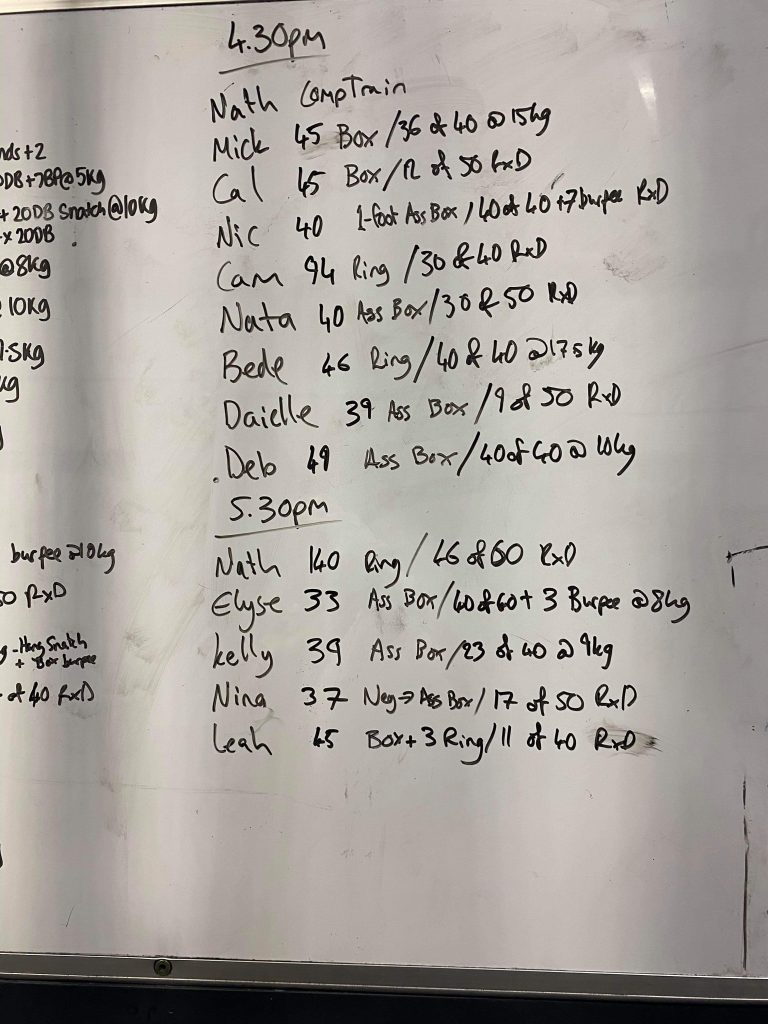 nds+2
DB+7BP@5kg
+ 20DB Snatch@10kg
x 20DB
@8kg
10kg
.5kg
kg
burpee @10kg
50 RxD
- Hang Snatch
+ Box burpee
of 40 RxD
4.30pm
Nath CompTrain
Mick 45 Box/36 of 40 @ 15kg
Cal 45 Box/12 of 50 RxD
Nic 40 1-foot Ass Box/40 of 40 +7 burpee RxD
Cam 94 Ring/30 of 40 RxD
Nata 40 Ass Box/30 of 50 RxD
Bede 46 Ring/40 of 40 @17.5kg
Daielle 39 Ass Box/9 of 50 RxD
.Deb 49 Ass Box/40 of 40 @ 10kg
5.30pm
Nath 140 Ring/46 of 60 RxD
Elyse 33 Ass Box/40 of 60+ 3 Burpee @8kg
Kelly 39 Ass Box/23 of 40 @ 9kg
Nina 37 Neg→Ass Box/17 of 50 RxD
Leah 45 Box+3 Ring/11 of 40 RxD